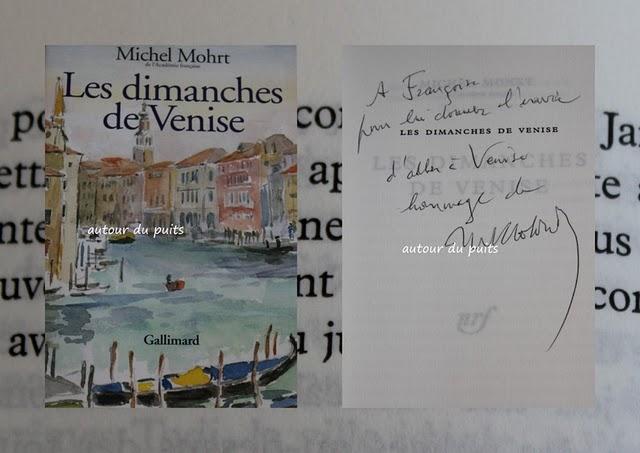 Michel Mohrt
de l'Académie française
Les dimanches
de Venise
autour du puits
Gallimard
A Françoise
pour lui donner l'envie
LES DIMANCHES DE VENISE
d'aller à Venise
hommage de
autour du puits
LES DIMANCHES
DE VENISE
nrf